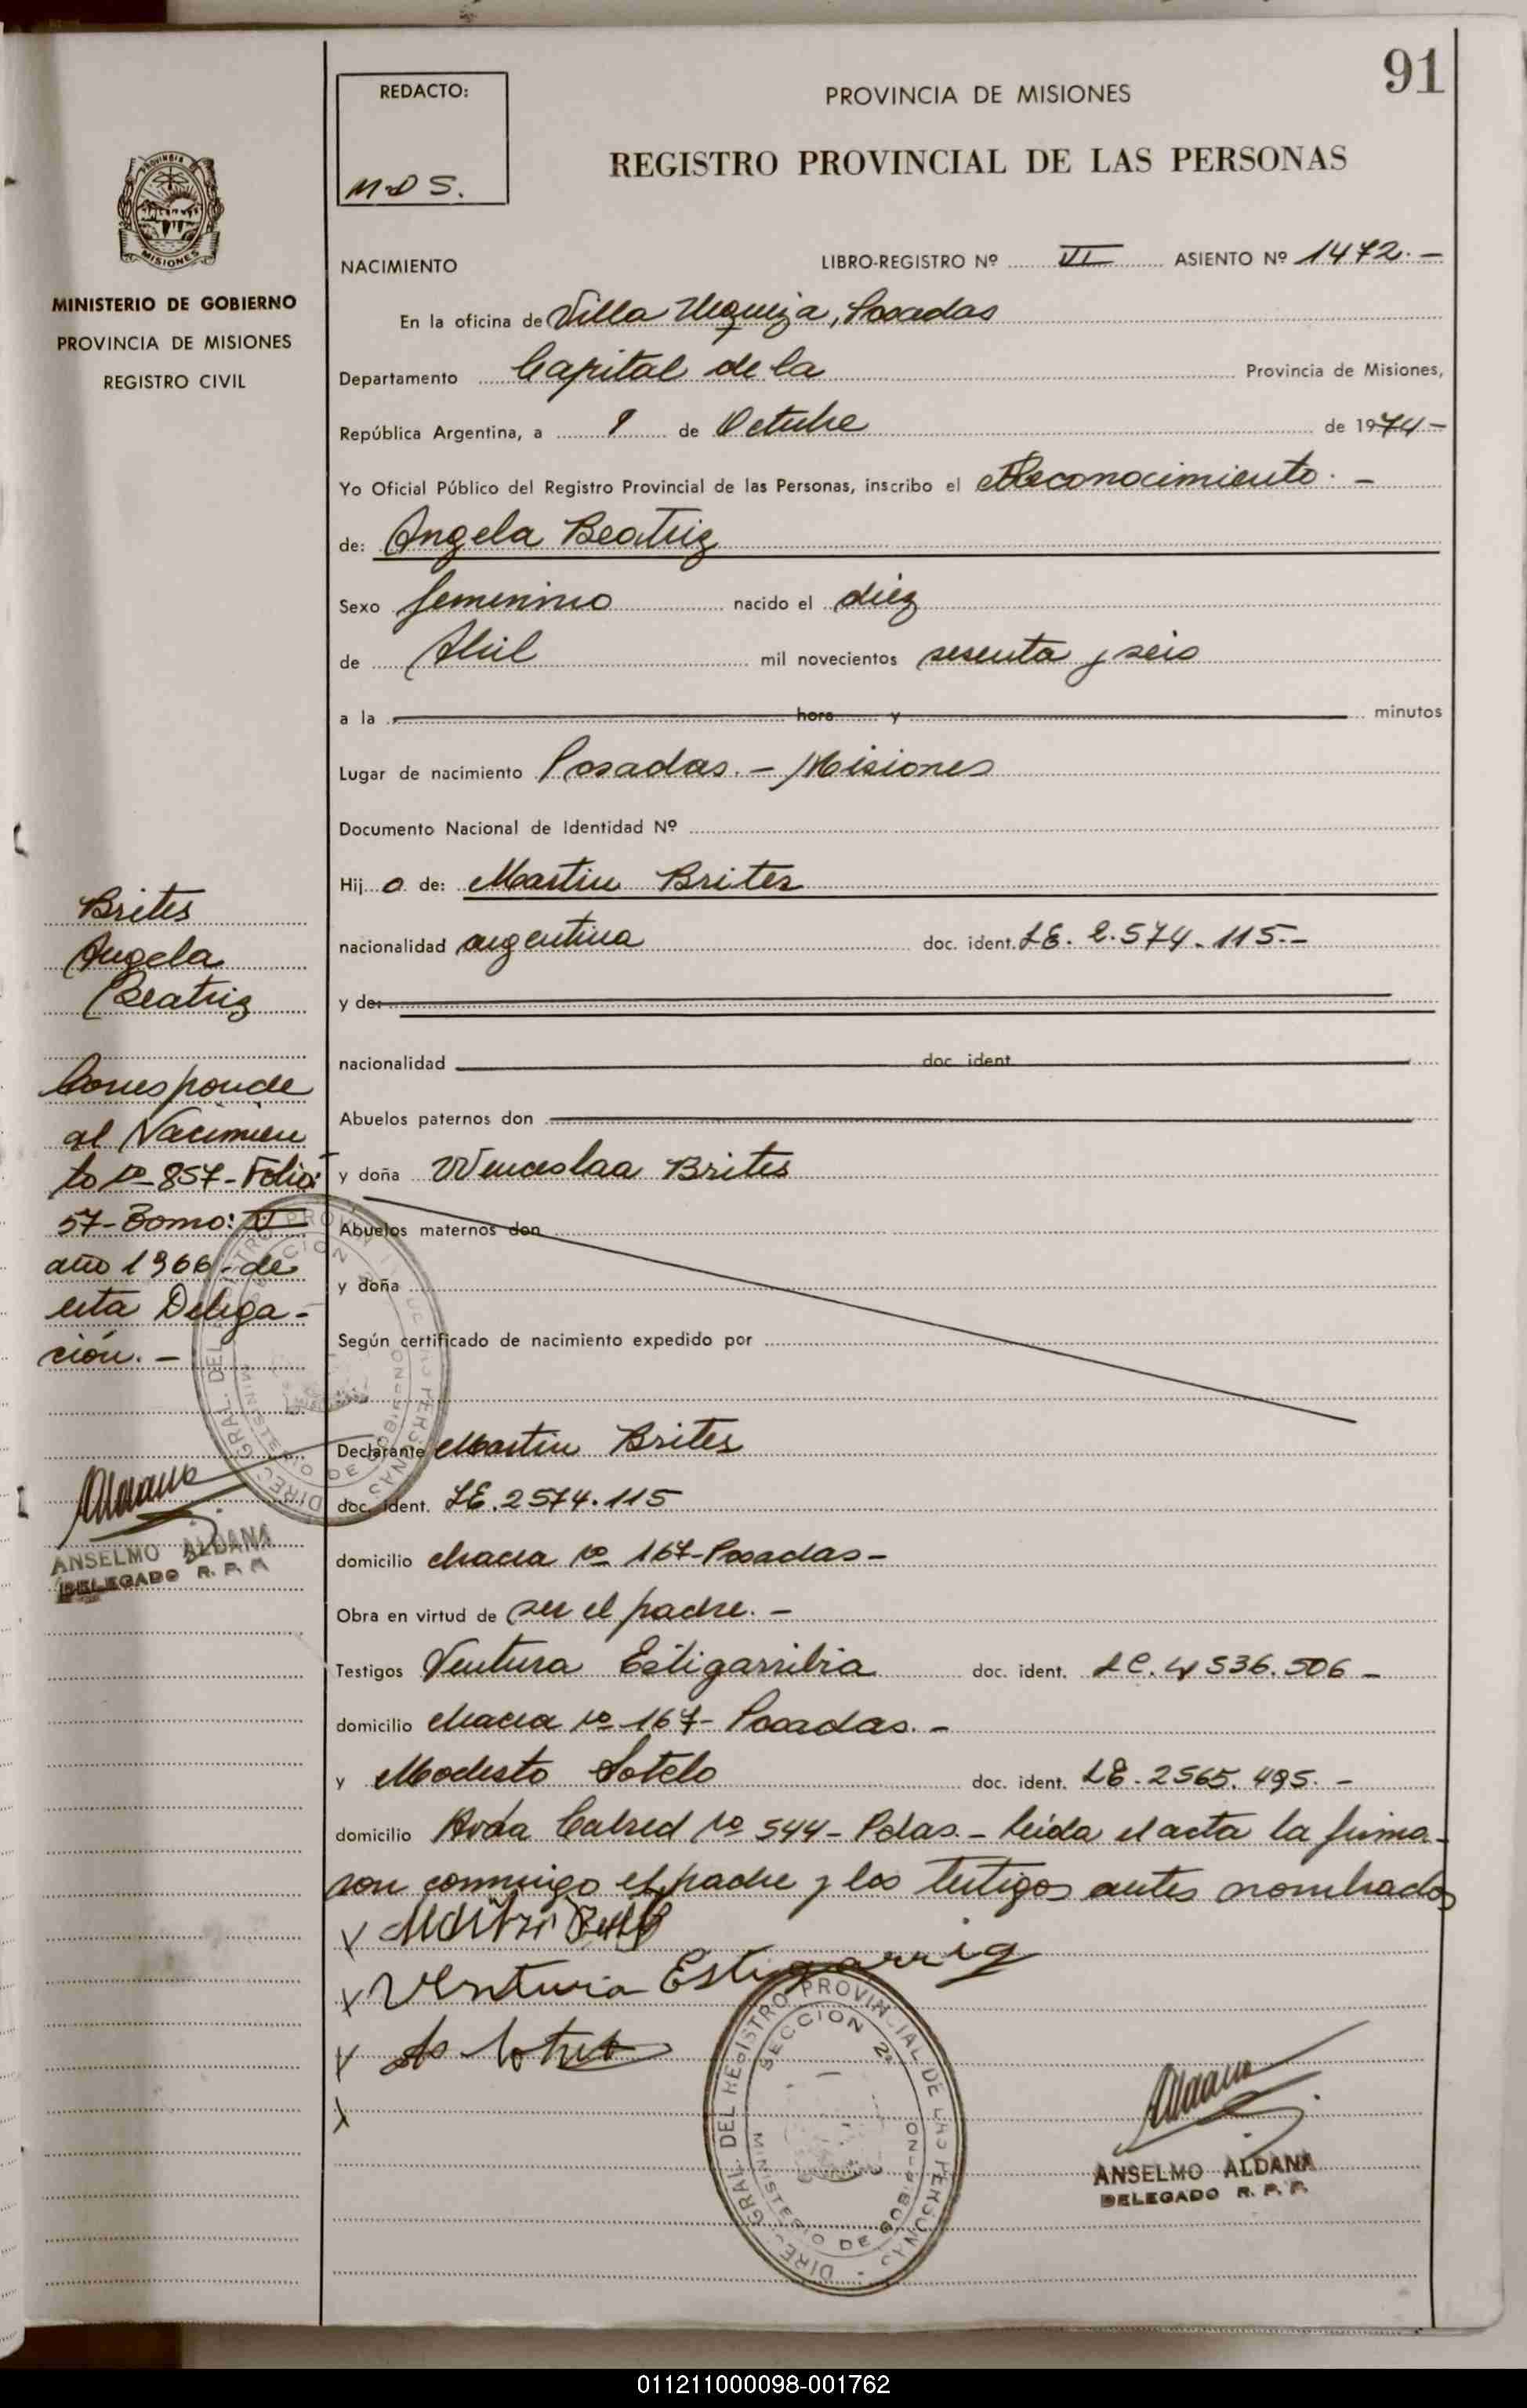 91
REDACTO:
M D S.
PROVINCIA DE MISIONES
REGISTRO PROVINCIAL DE LAS PERSONAS
PROVINCIA
MISIONES
MINISTERIO DE GOBIERNO
PROVINCIA DE MISIONES
REGISTRO CIVIL
NACIMIENTO
LIBRO-REGISTRO Nº VI ASIENTO Nº 1472.-
En la oficina de Villa Urquiza, Posadas
Departamento Capital de la Provincia de Misiones,
República Argentina, a 9 de Octubre de 1974-
Yo Oficial Público del Registro Provincial de las Personas, inscribo el Reconocimiento.-
de: Angela Beatriz
Sexo femenino nacido el diez
de Abril mil novecientos sesenta y seis
a la hora y minutos
Lugar de nacimiento Posadas.- Misiones
Documento Nacional de Identidad Nº
Hij a de: Martin Brites
nacionalidad argentina doc. ident. LE. 2.574.115.-
y de:
nacionalidad doc. ident.
Abuelos paternos don
y doña Wenceslaa Brites
Abuelos maternos don
y doña
Según certificado de nacimiento expedido por
Declarante Martin Brites
doc. ident. LE. 2574.115
domicilio chacra Nº 167-Posadas-
Obra en virtud de ser el padre.-
Testigos Ventura Estigarribia doc. ident. LC. 4536.506-
domicilio chacra Nº 167- Posadas.-
y Modesto Sotelo doc. ident. LE. 2565.495.-
domicilio Avda Cabred Nº 544- Pdas.- leida el acta la firma-
ron conmigo el padre y los testigos antes nombrados
X
X Ventura Estigarrig
X
X
Brites
Angela
Beatriz
Corresponde
al Nacimien
to Nº 857-Folio:
57-Tomo: VI
año 1966-de
esta Delega-
ción.-
Aldana
ANSELMO ALDANA
DELEGADO R. P. P.
DIREC. GRAL. DEL REGISTRO PROVINCIAL DE LAS PERSONAS
SECCION 2ª
MINISTERIO DE GOBIERNO
DIREC. GRAL. DEL REGISTRO PROVINCIAL DE LAS PERSONAS
SECCION 2ª
MINISTERIO DE GOBIERNO
Aldana
ANSELMO ALDANA
DELEGADO R. P. P.
011211000098-001762